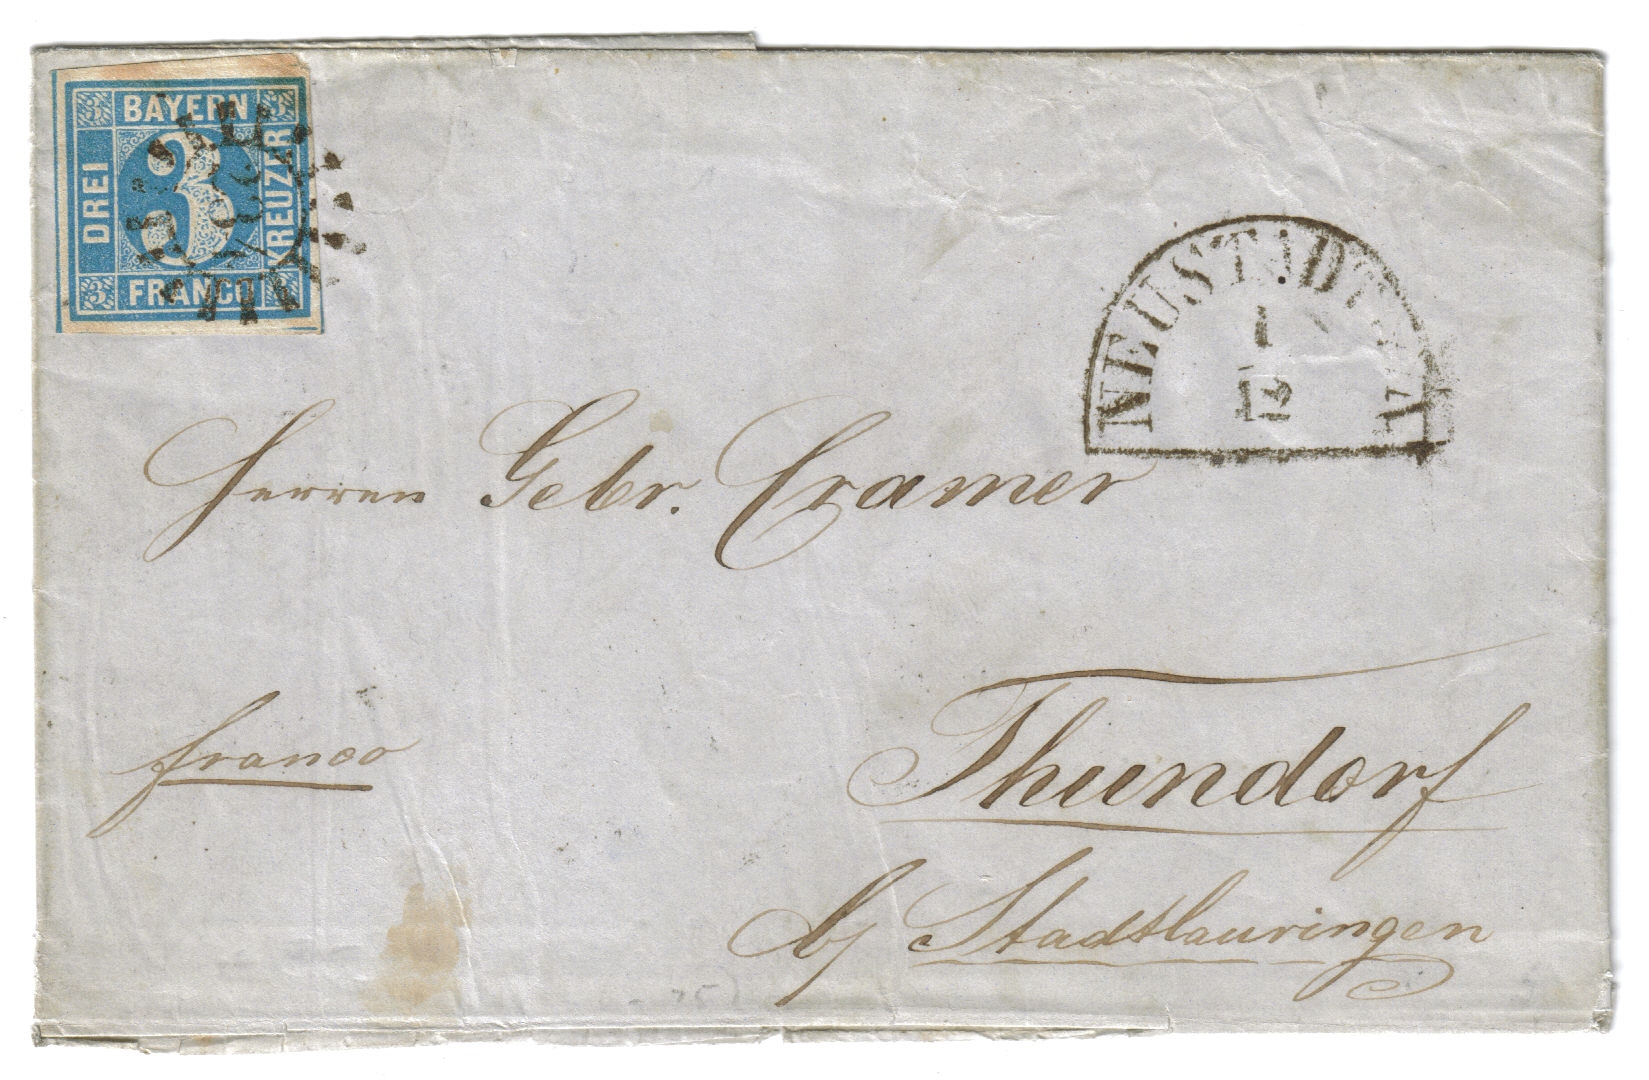 3 BAYERN 3
DREI 3 KREUZER
3 FRANCO
NEUSTADT
1
12
Herren Gebr. Cramer
franco
Thundorf
b/ Stadtlauringen